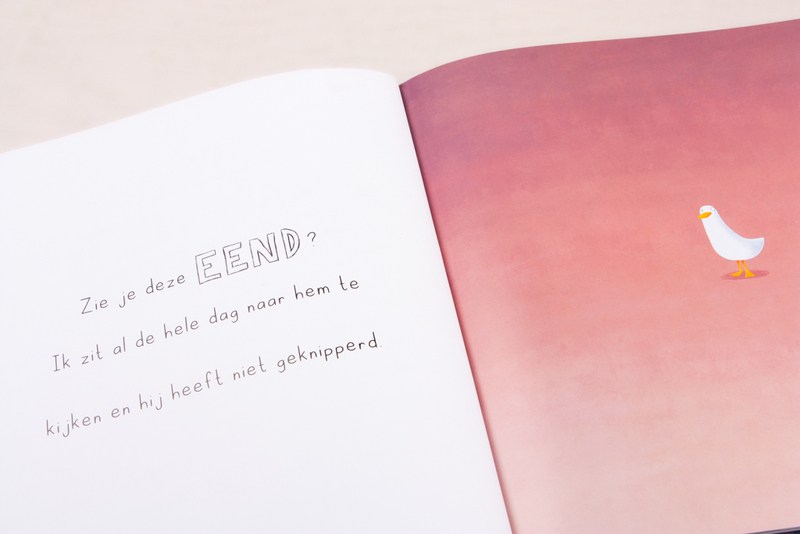 Zie je deze EEND?
Ik zit al de hele dag naar hem te
kijken en hij heeft niet geknipperd.